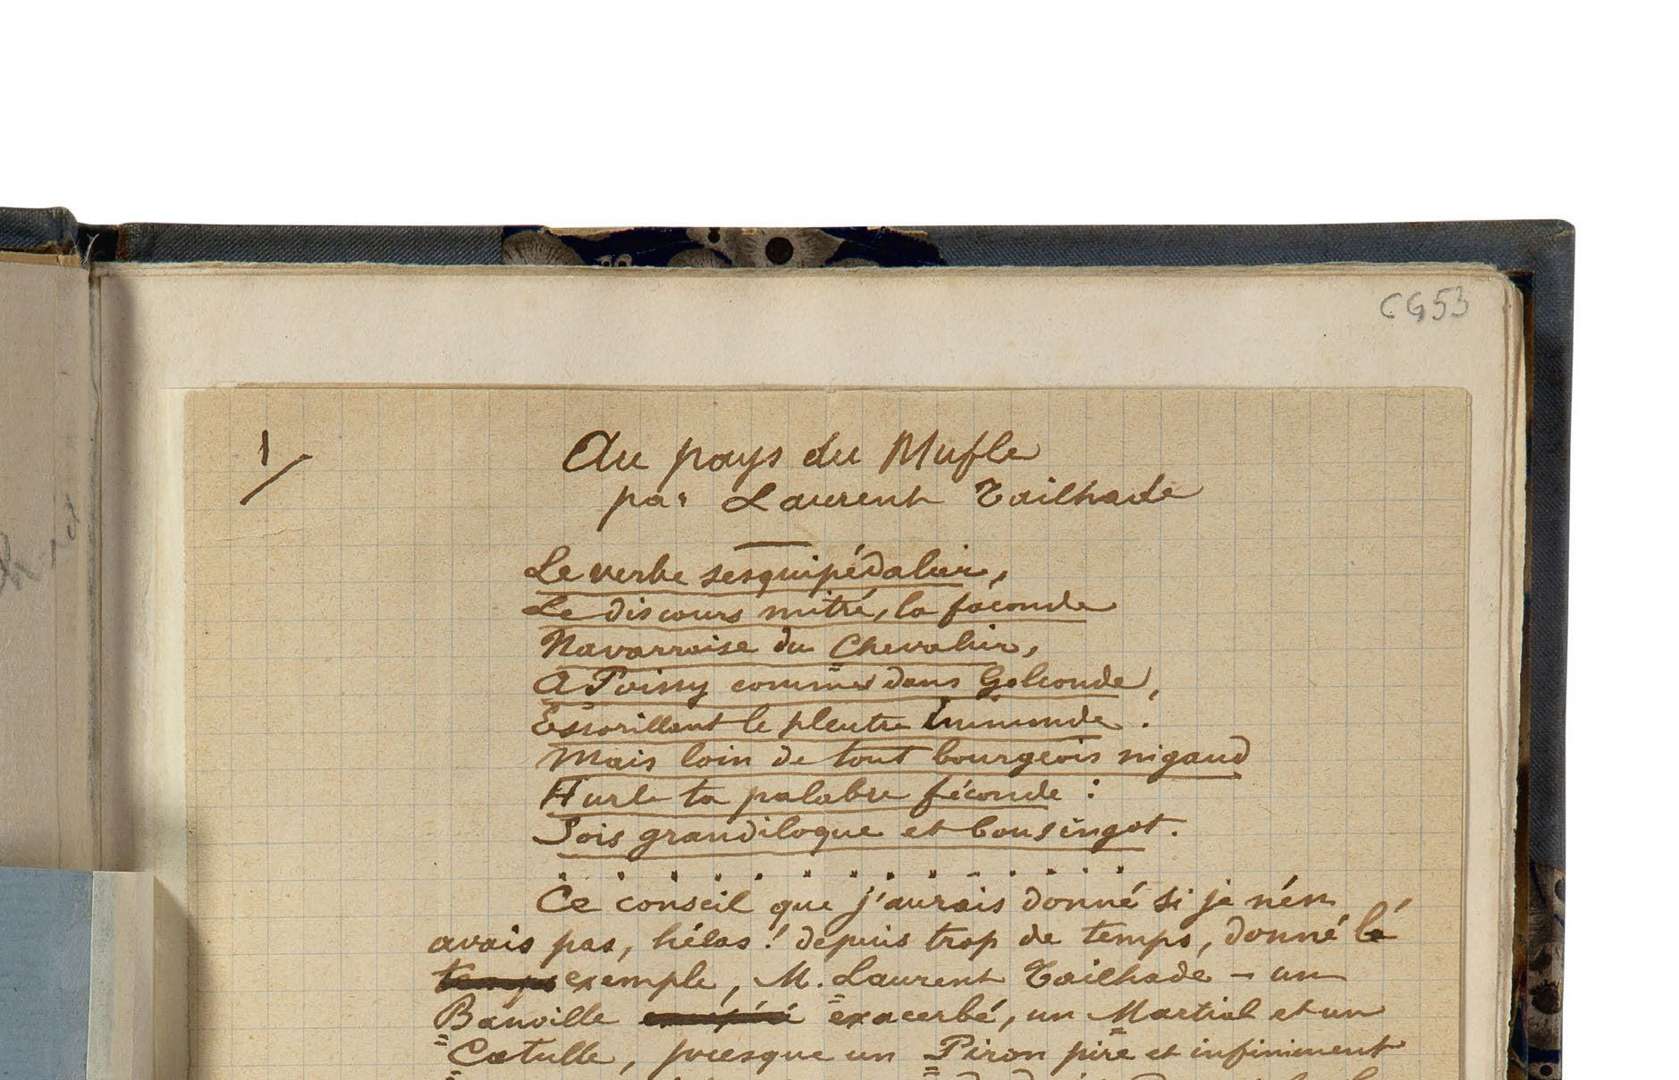 CG53
1/
Au pays du Mufle
par Laurent Tailhade
Le verbe sesquipédalier,
Le discours mitré, la faconde
Navarraise du Chevalier,
A Poissy comme dans Golconde,
Essorillent le pleutre immonde :
Mais loin de tout bourgeois nigaud
Hurle ta palabre féconde :
Sois grandiloque et bousingot.
. . . . . . . . . . . . .
Ce conseil que j'aurais donné si je n'en
avais pas, hélas ! depuis trop de temps, donné l'é
temps exemple, M. Laurent Tailhade – un
Banville exacerbé, un Martial et un
Catulle, presque un Piron pire et infiniment